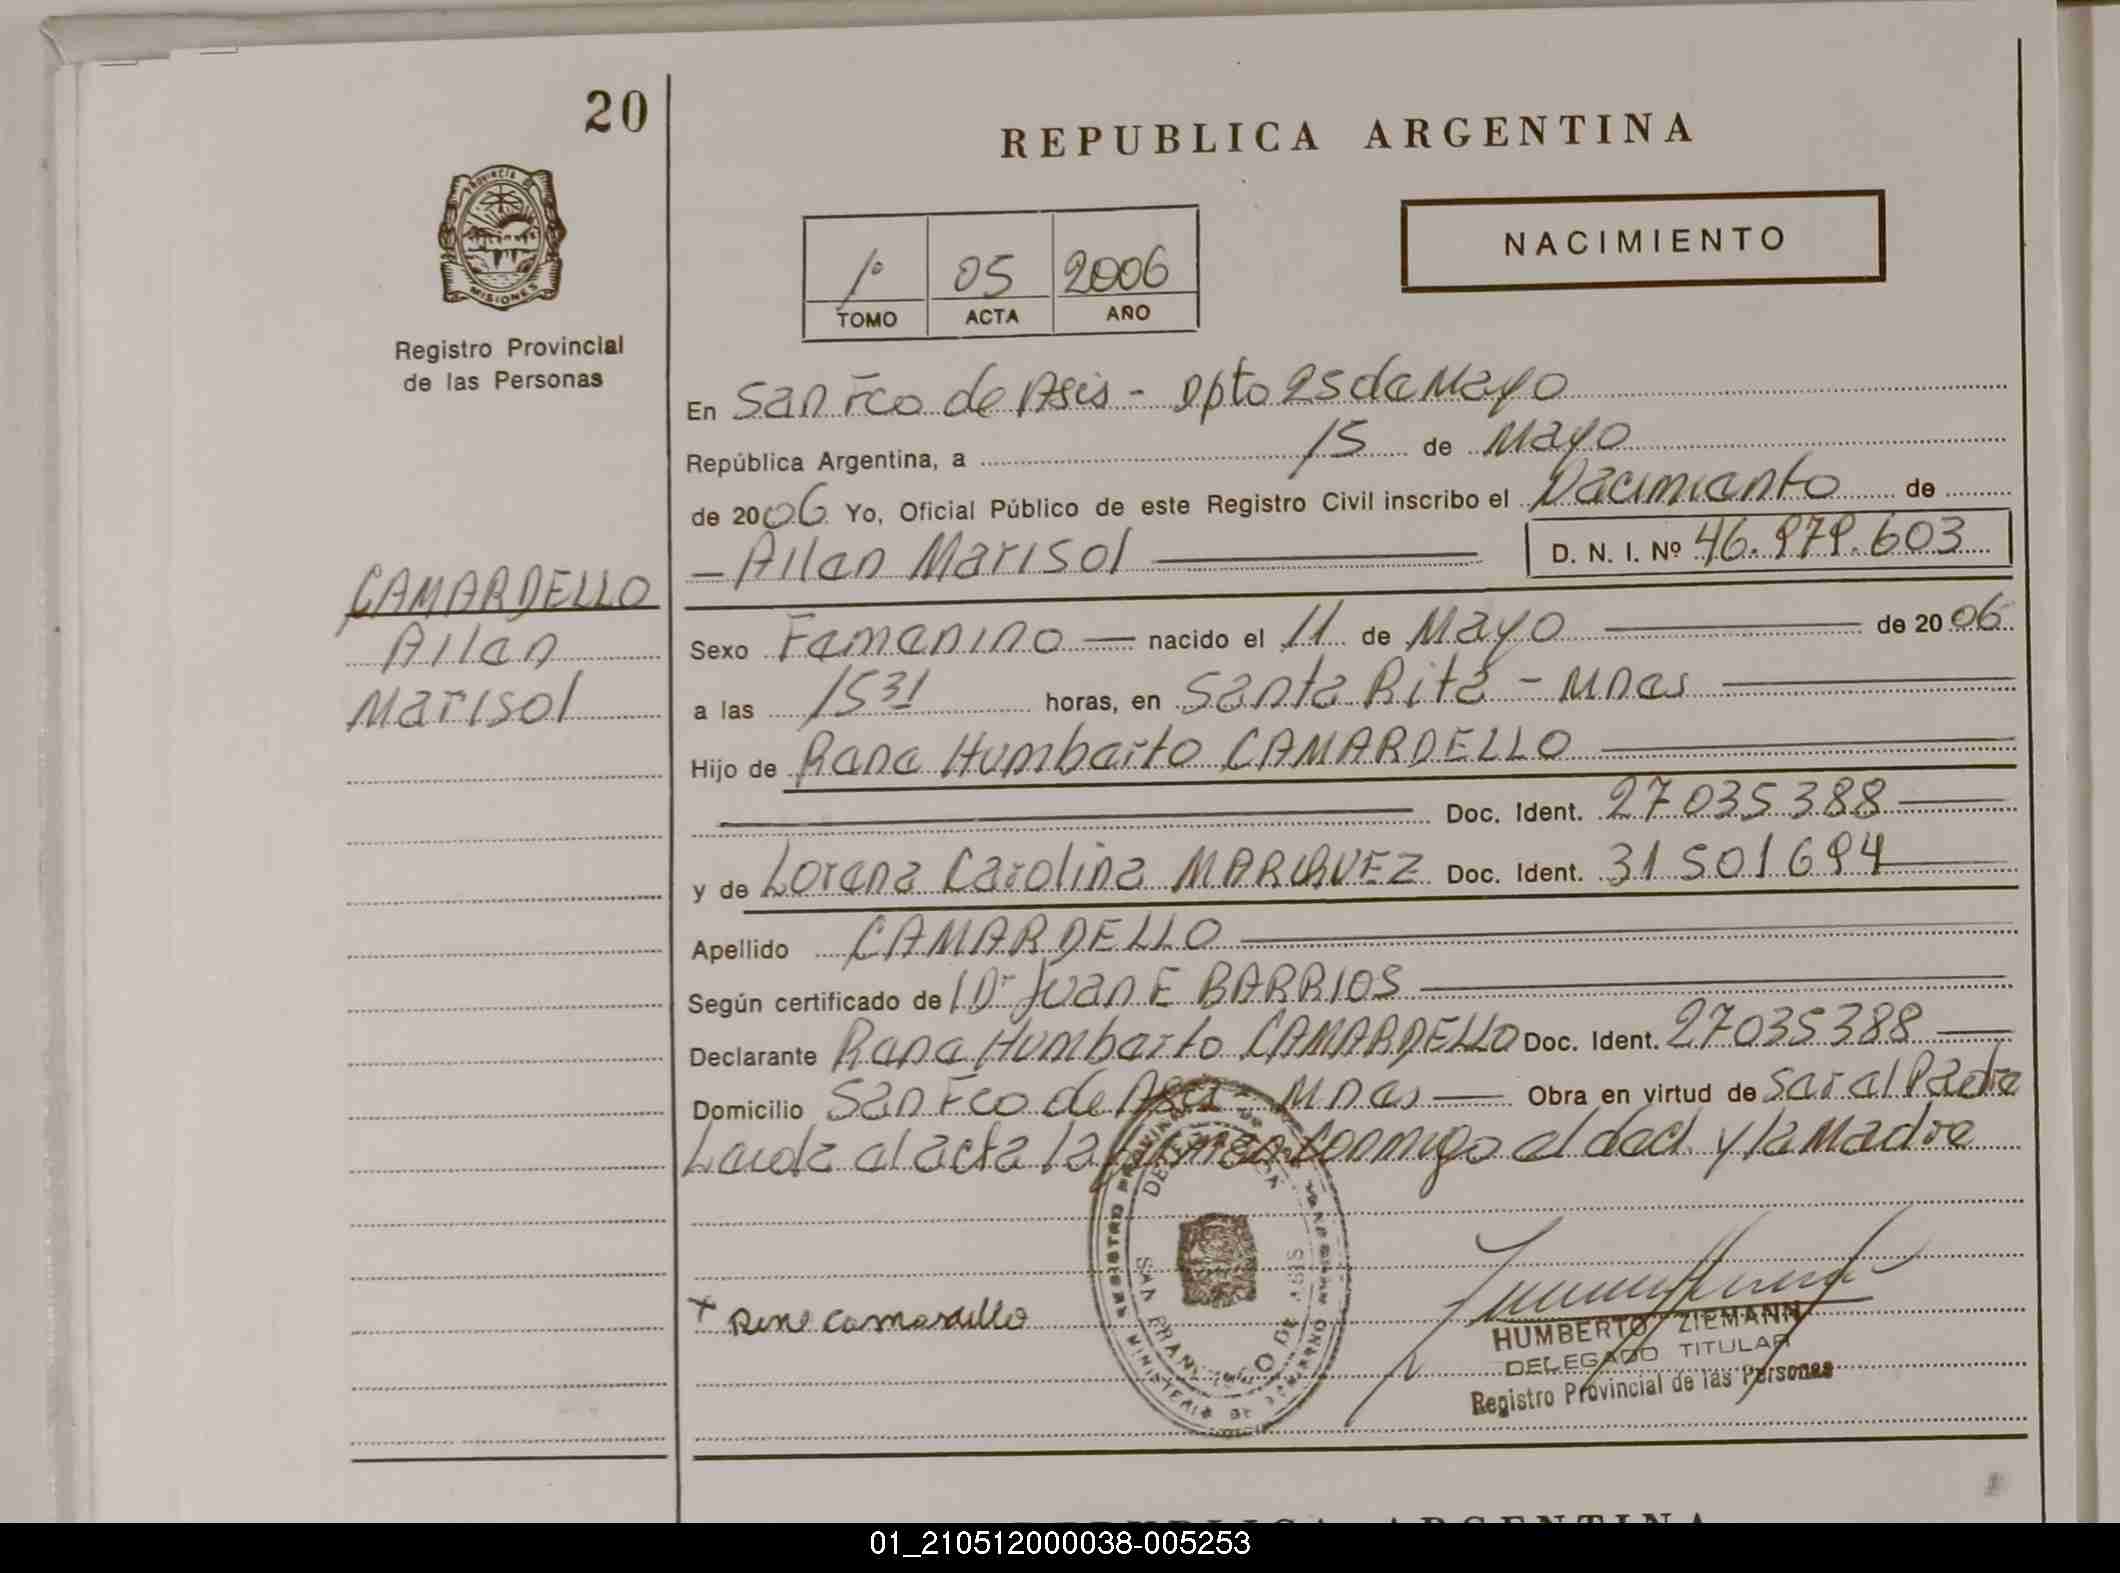 20
REPUBLICA ARGENTINA
PROVINCIA DE
MISIONES
NACIMIENTO
1º 05 2006
TOMO ACTA AÑO
Registro Provincial
de las Personas
En San Fco de Asis - Dpto 25 de Mayo
República Argentina, a 15 de Mayo
de 2006 Yo, Oficial Público de este Registro Civil inscribo el Nacimiento de
Ailen Marisol D. N. I. Nº 46.979.603
CAMARDELLO
Ailen
Marisol
Sexo Femenino nacido el 11 de Mayo de 2006
a las 15 31 horas, en Santa Rita - Mnes
Hijo de Rene Humberto CAMARDELLO
Doc. Ident. 27035388
y de Lorena Carolina MARQUEZ Doc. Ident. 31501694
Apellido CAMARDELLO
Según certificado de Dr Juan E BARRIOS
Declarante Rene Humberto CAMARDELLO Doc. Ident. 27035388
Domicilio San Fco de Asis Mnes Obra en virtud de Ser el Padre
Leida el acta la firman conmigo el decl. y la Madre
SAN FRANCISCO DE ASIS
x Rene Camardello
HUMBERTO ZIEMANN
DELEGADO TITULAR
Registro Provincial de las Personas
REPUBLICA ARGENTINA
01_210512000038-005253